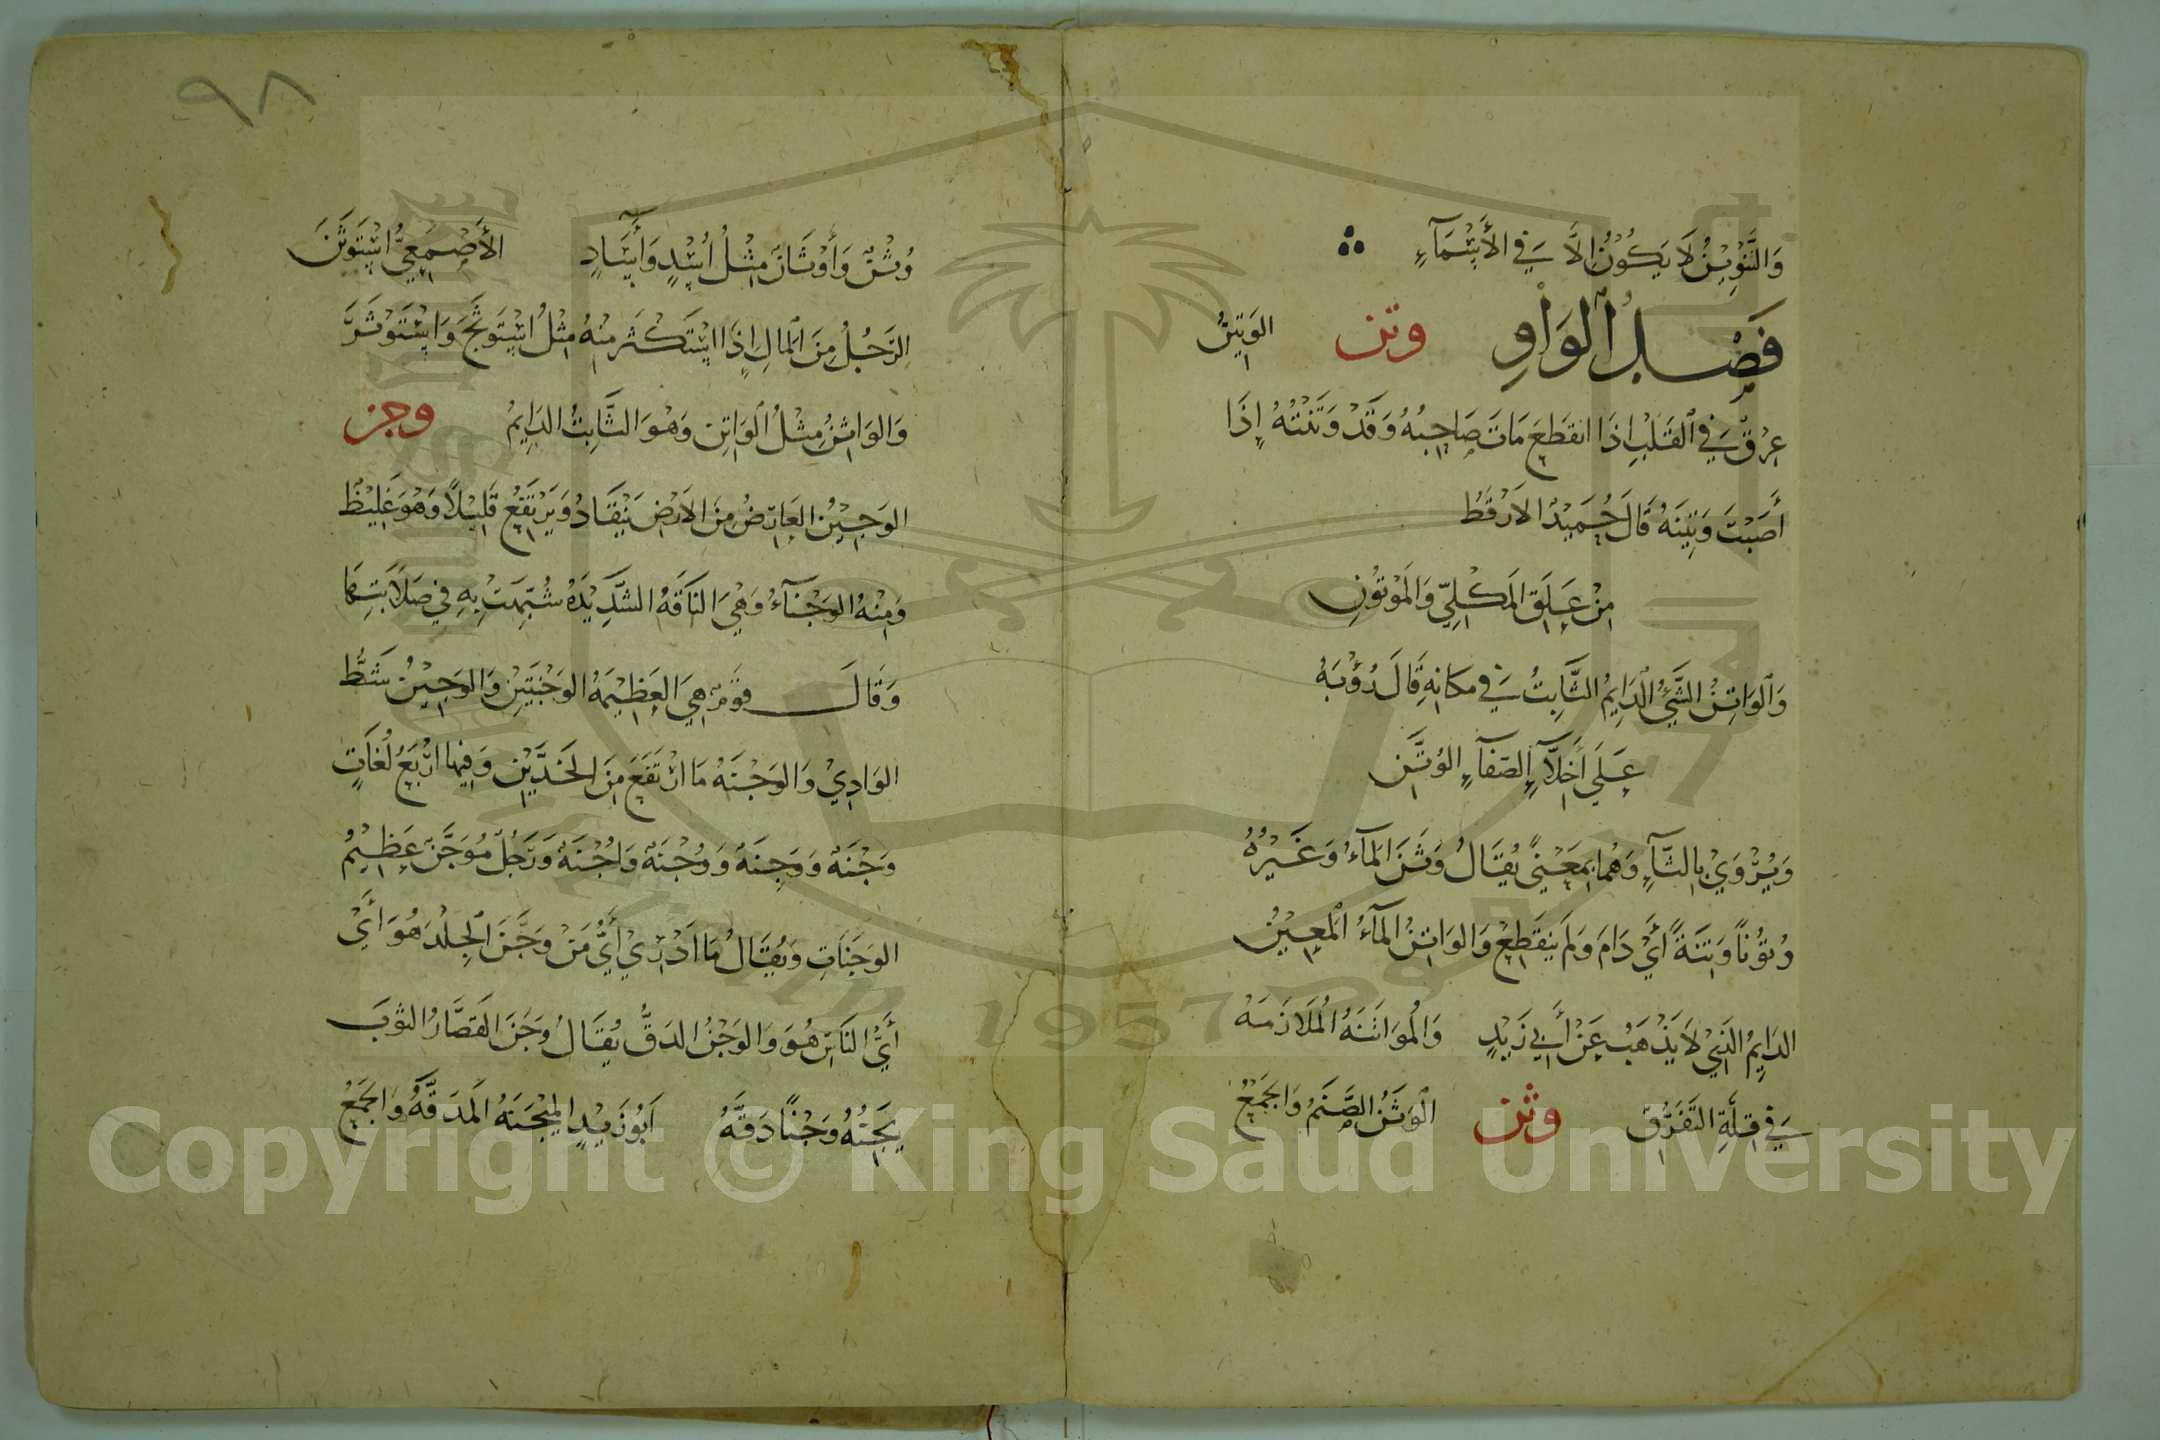 وَالتَّنْوِيْنُ لَا يَكُوْنُ إِلَّا فِي الْأَسْمَآءِ ∴
فَصْلُ الْوَاوِ وتن الوَتِيْنُ
عِرْقٌ فِي الْقَلْبِ اِذَا انقَطَعَ مَاتَ صَاحِبُهُ وَقَدْ وَتَنْتُهُ إِذَا
أَصَبْتَ وَتِيْنَهُ قَالَ حُمَيْدُ الْاَرْقَطُ
مِنْ عَلَقِ الْمَكْلِيِّ وَالْمَوْتُوْنِ
وَالْوَاتِنُ الشَّيْءُ الْدَايِمُ الثَّابِتُ فِي مَكانِهِ قَالَ رُؤْبَهُ
عَلَي أَخِلَّآءِ الصَّفآءِ الوُتَّنِ
وَيُرْوَيْ بِالثَّآءِ وَهُمَا بِمَعْنيً يُقَالُ وَتَنَ الْمَآءُ وَغَيْرُهُ
وُتُوْنًا وَتِنَةً أَيْ دَامَ وَلَمْ يَنقَطِعْ وَالوَاتِنُ الْمَآءُ الْمَعِيْنُ
الدَايِمُ الَّذِيْ لَا يَذْهَبُ عَنْ أَبِي زَيْدٍ وَالْمُوَاتَنَهُ الْمُلَازَمَهُ
فِي قِلَّةِ التَّفَرُّقِ وثن الْوَثَنُ الصَّنَمُ وَالجَمْعُ
وُثْنٌ وَأَوْثَانٌ مِثْلُ اُسْدٍ وَأَسَادٍ الأَصْمَعِيُّ اسْتَوْثَنَ
الرَّجُلُ مِنَ الْمَالِ اِذَا اسْتَكْثَرَ مِنْهُ مِثْلُ اسْتَوْثَجَ وَاسْتَوْثَرَ
وَالوَاثِنُ مِثْلُ الْوَاتِنِ وَهُوَ الثَّابِتُ الدَايِمُ وجن
الوَجِيْنُ العَارِضُ مِنَ الاَرْضِ يَنْقَادُ وَيَرْتَفِعُ قَلِيْلًا وَهُوَ غَلِيْظٌ
وَمِنْهُ الوَجْنَآءُ وَهْيَ النَاقَهُ الشَّدِيْدَهُ شُبِّهَتْ بِهِ فِي صَلَابَتِهَا
وَقَالَ قَوْمٌ هِيَ العَظِيْمَهُ الوَجْنَتَيْنِ وَالوَجِيْنُ شَطُّ
الوَادِيْ وَالوَجْنَهُ مَا ارْتَفَعَ مِنَ الخَدَّيْنِ وَفِيهَا ارْبَعُ لُغَاتٍ
وَجْنَهٌ وَوَجِنَهٌ وَوُجْنَهٌ وَاُجْنَهٌ وَرَجُلٌ مُوَجَّنٌ عَظِيْمُ
الوَجَنَاتِ وَيُقَالُ مَا اَدْرِيْ أَيُّ مَنْ وَجَّنَ الْجِلْدَ هُوَ أَيْ
أَيُّ النَاسِ هُوَ وَالوَجْنُ الدَقُّ يُقَالُ وَجَنَ القَصَّارُ الثَوبَ
يَجِنُهُ وَجْنًا دَقَّهُ اَبُوْ زَيْدٍ المِيْجَنَهُ الْمَدَقَّهُ وَالجَمْعُ
٩٨
1957
Copyright © King Saud University